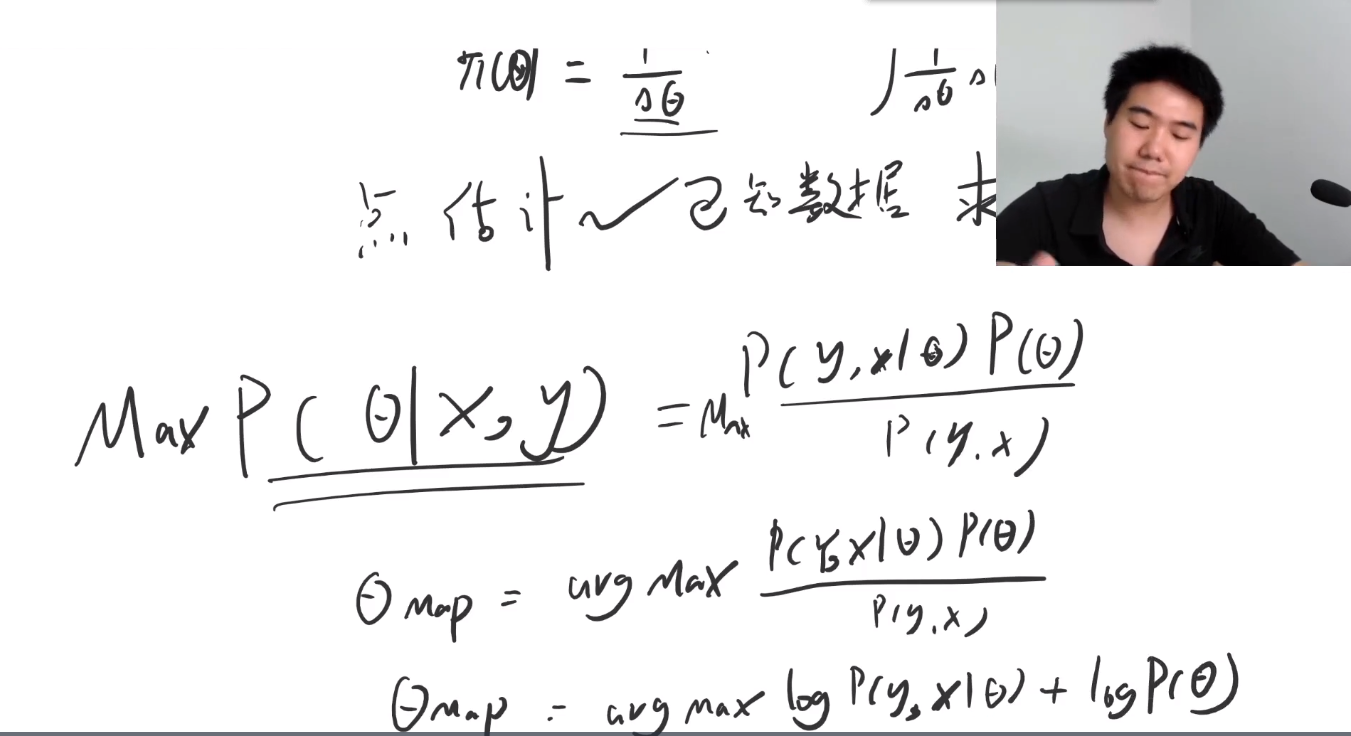 π(θ) = 1/sθ ∫ 1/sθ
点估计 ~ 已知数据 求
Max P(θ|x,y) = Max P(y,x|θ)P(θ) / P(y,x)
θMap = arg Max P(y,x|θ)P(θ) / P(y,x)
θMap = arg max log P(y,x|θ) + log P(θ)